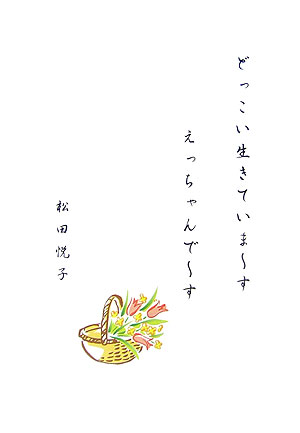 どっこい生きていま〜す
えっちゃんで〜す
松田悦子